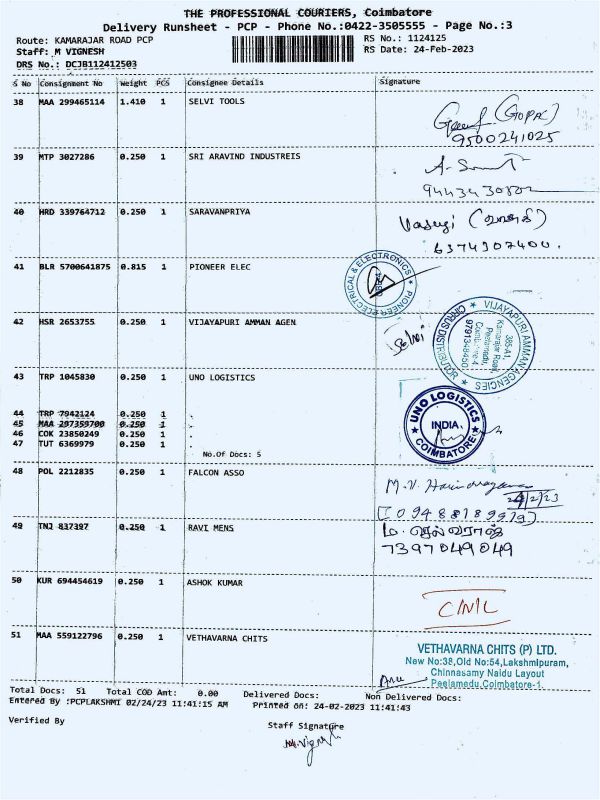 THE PROFESSIONAL COURIERS, Coimbatore
Delivery Runsheet - PCP - Phone No.:0422-3505555 - Page No.:3
Route: KAMARAJAR ROAD PCP RS No.: 1124125
Staff: M VIGNESH RS Date: 24-Feb-2023
DRS No.: DCJB112412503
S No Consignment No Weight PCS Consignee Details Signature
38 MAA 299465114 1.410 1 SELVI TOOLS
(GOPAL)
9500241025
39 MTP 3027286 0.250 1 SRI ARAVIND INDUSTREIS
40 HRD 339764712 0.250 1 SARAVANPRIYA
Vasugi (வாசுகி)
6374907400.
41 BLR 5700641875 0.815 1 PIONEER ELEC
PIONEER ELECTRICAL & ELECTRONICS
42 HSR 2653755 0.250 1 VIJAYAPURI AMMAN AGEN
Selvi
VIJAYAPURI AMMAN AGENCIES
CIRRUS DISTRIBUTOR
385-A1,
Kamarajar Road,
Peelamedu,
Coimbatore-4
43 TRP 1045830 0.250 1 UNO LOGISTICS
UNO LOGISTICS
INDIA
COIMBATORE
44 TRP 7942124 0.250 1
45 MAA 297359700 0.250 1
46 COK 23850249 0.250 1
47 TUT 6369979 0.250 1
No.Of Docs: 5
48 POL 2212835 0.250 1 FALCON ASSO
24/2/23
49 TNJ 837397 0.250 1 RAVI MENS
ம. செல்வராஜ்
7397049049
50 KUR 694454619 0.250 1 ASHOK KUMAR
51 MAA 559122796 0.250 1 VETHAVARNA CHITS
VETHAVARNA CHITS (P) LTD.
New No:38,Old No:54,Lakshmipuram,
Chinnasamy Naidu Layout
Peelamedu,Coimbatore-1.
Total Docs: 51 Total COD Amt: 0.00 Delivered Docs: Non Delivered Docs:
Entered By :PCPLAKSHMI 02/24/23 11:41:15 AM Printed on: 24-02-2023 11:41:43
Verified By Staff Signature